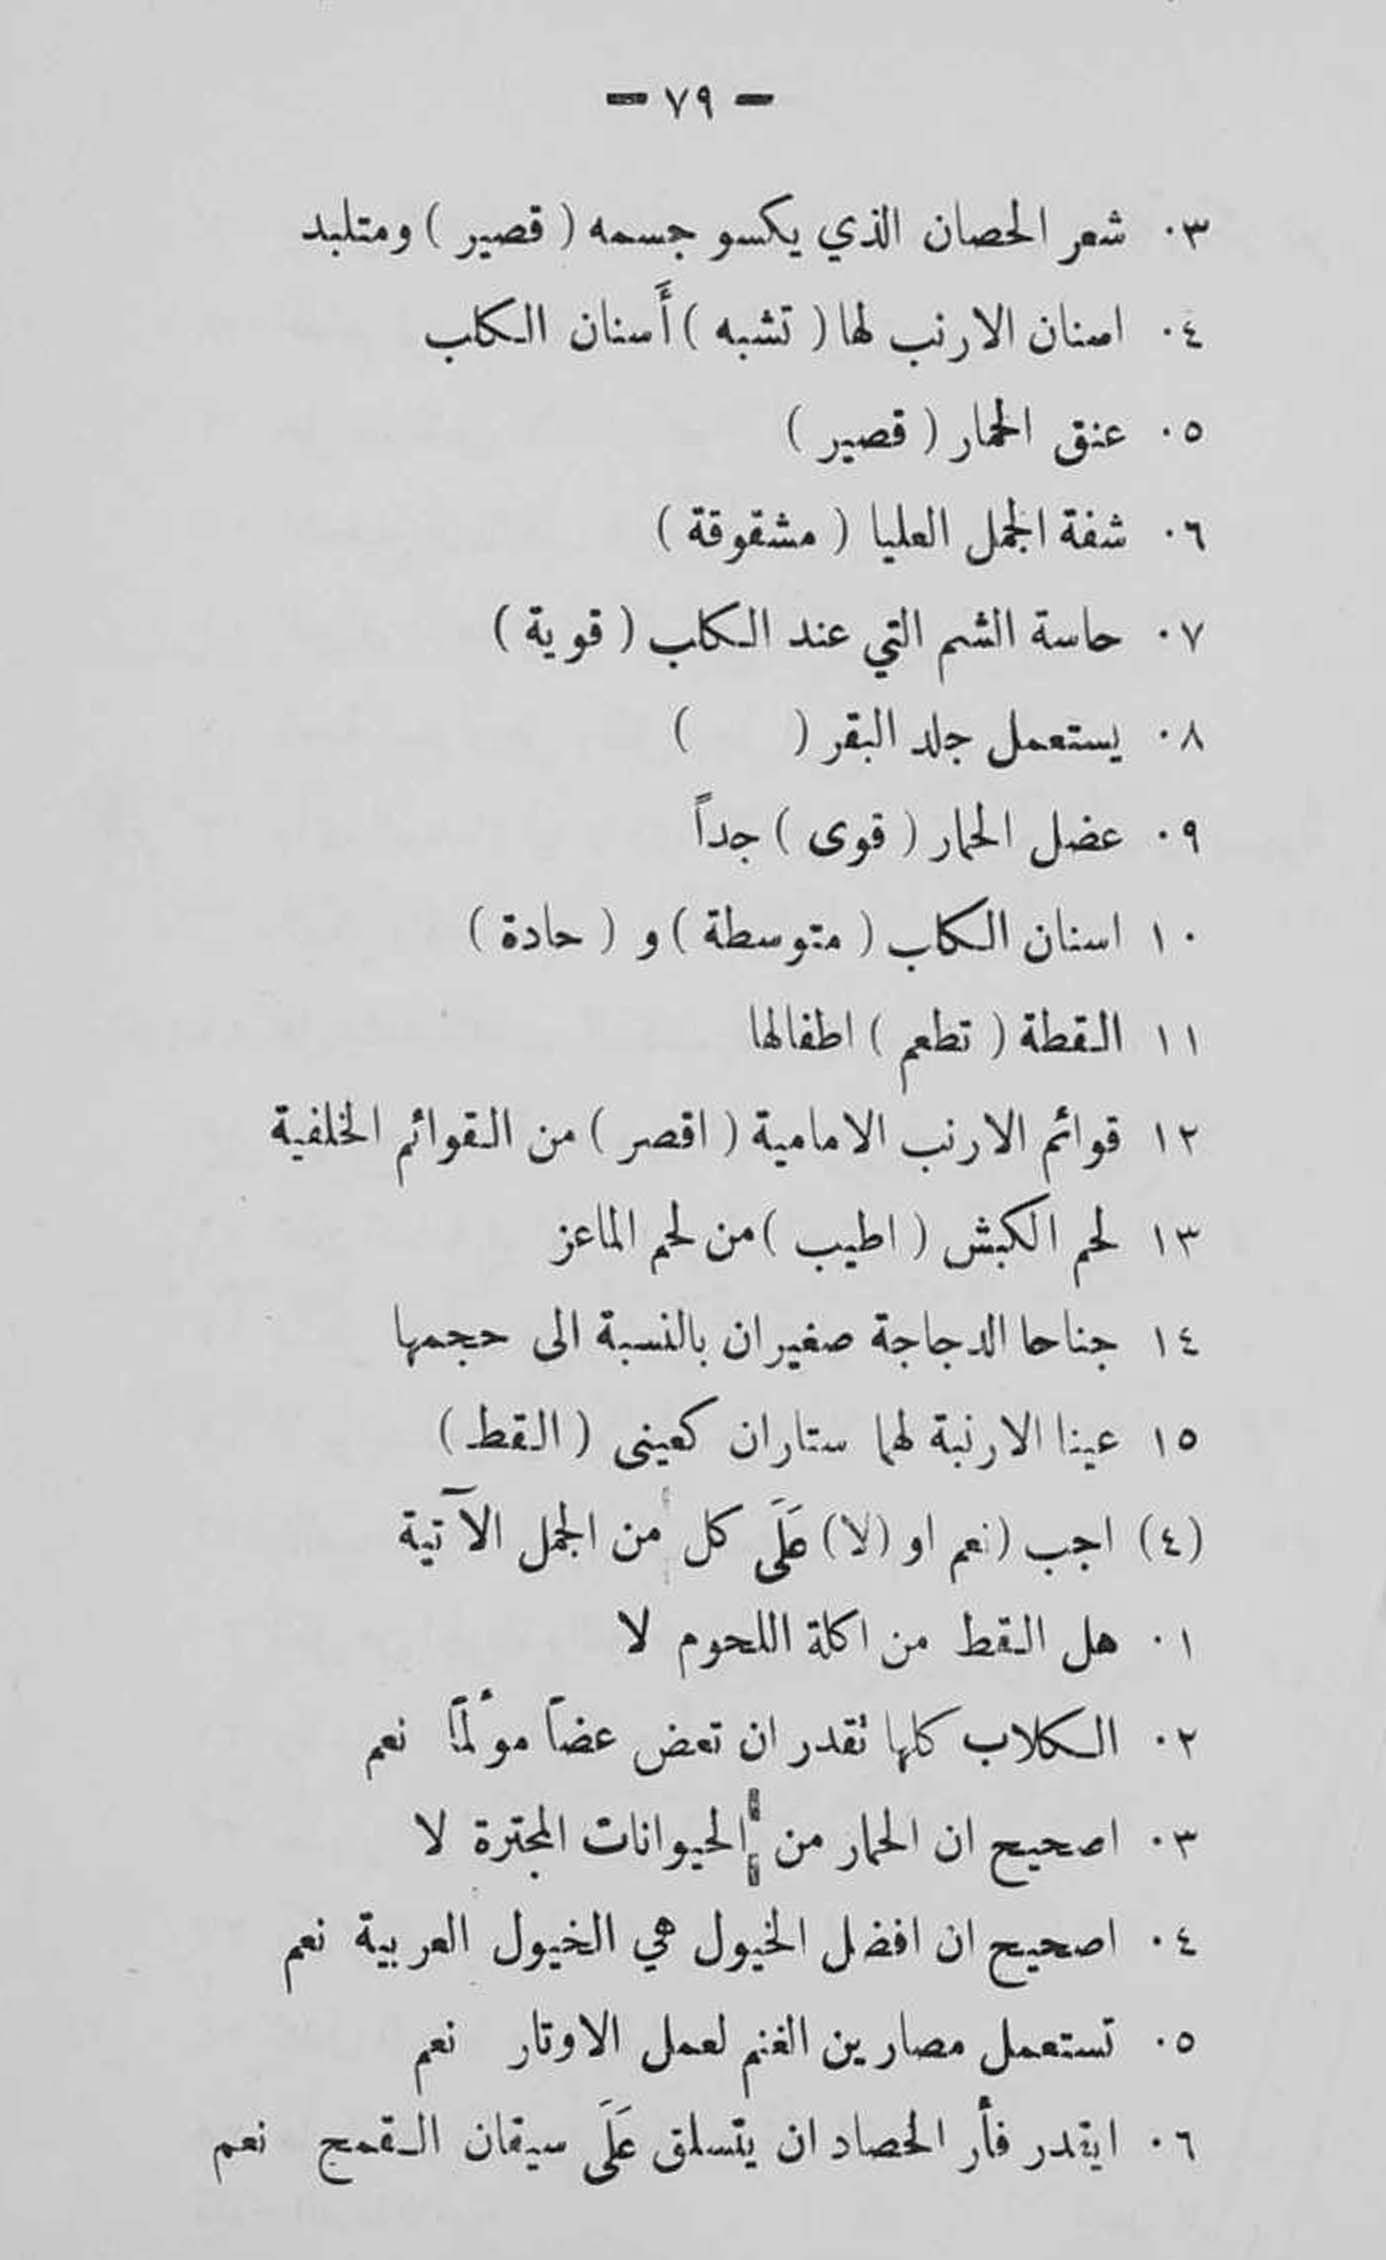 — ٧٩ —
٠٣ شعر الحصان الذي يكسو جسمه ( قصير ) ومتلبد
٠٤ اسنان الارنب لها ( تشبه ) أَسنان الكلب
٠٥ عنق الحمار ( قصير )
٠٦ شفة الجمل العليا ( مشقوقة )
٠٧ حاسة الشم التي عند الكلب ( قوية )
٠٨ يستعمل جلد البقر (        )
٠٩ عضل الحمار ( قوى ) جداً
١٠ اسنان الكاب ( متوسطة ) و ( حادة )
١١ القطة ( تطعم ) اطفالها
١٢ قوائم الارنب الامامية ( اقصر ) من القوائم الخلفية
١٣ لحم الكبش ( اطيب ) من لحم الماعز
١٤ جناحا الدجاجة صغيران بالنسبة الى حجمها
١٥ عينا الارنبة لهما ستاران كعينى ( القط )
(٤) اجب (نعم او (لا) عَلَى كل من الجمل الآتية
٠١ هل القط من اكلة اللحوم لا
٠٢ الكلاب كلها تقدر ان تعض عضاً موٴلماً نعم
٠٣ اصحيح ان الحمار من الحيوانات المجترة لا
٠٤ اصحيح ان افضل الخيول هي الخيول العربية نعم
٠٥ تستعمل مصارين الغنم لعمل الاوتار نعم
٠٦ ايقدر فأر الحصاد ان يتسلق عَلَى سيقان القمح نعم